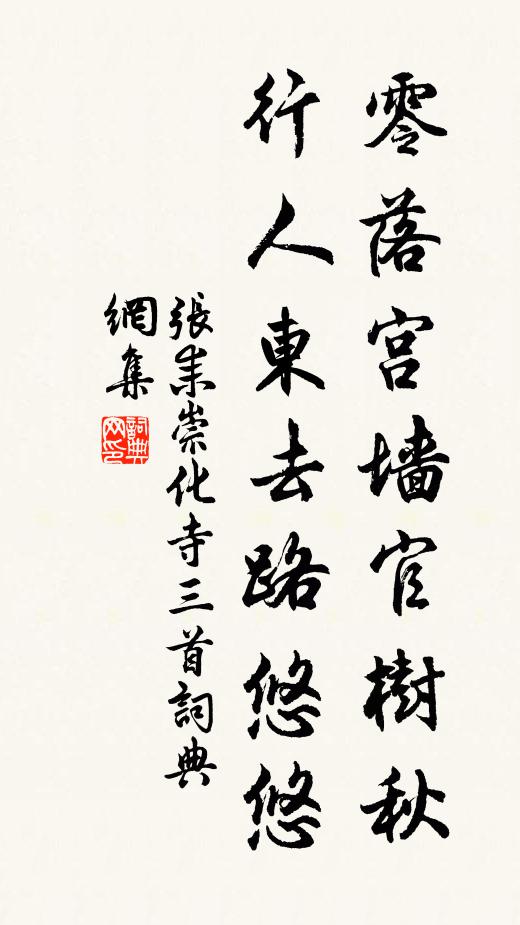 零落宫墙官樹秋
行人東去路悠悠
張耒崇化寺三首詞典
網集
詞典
网印